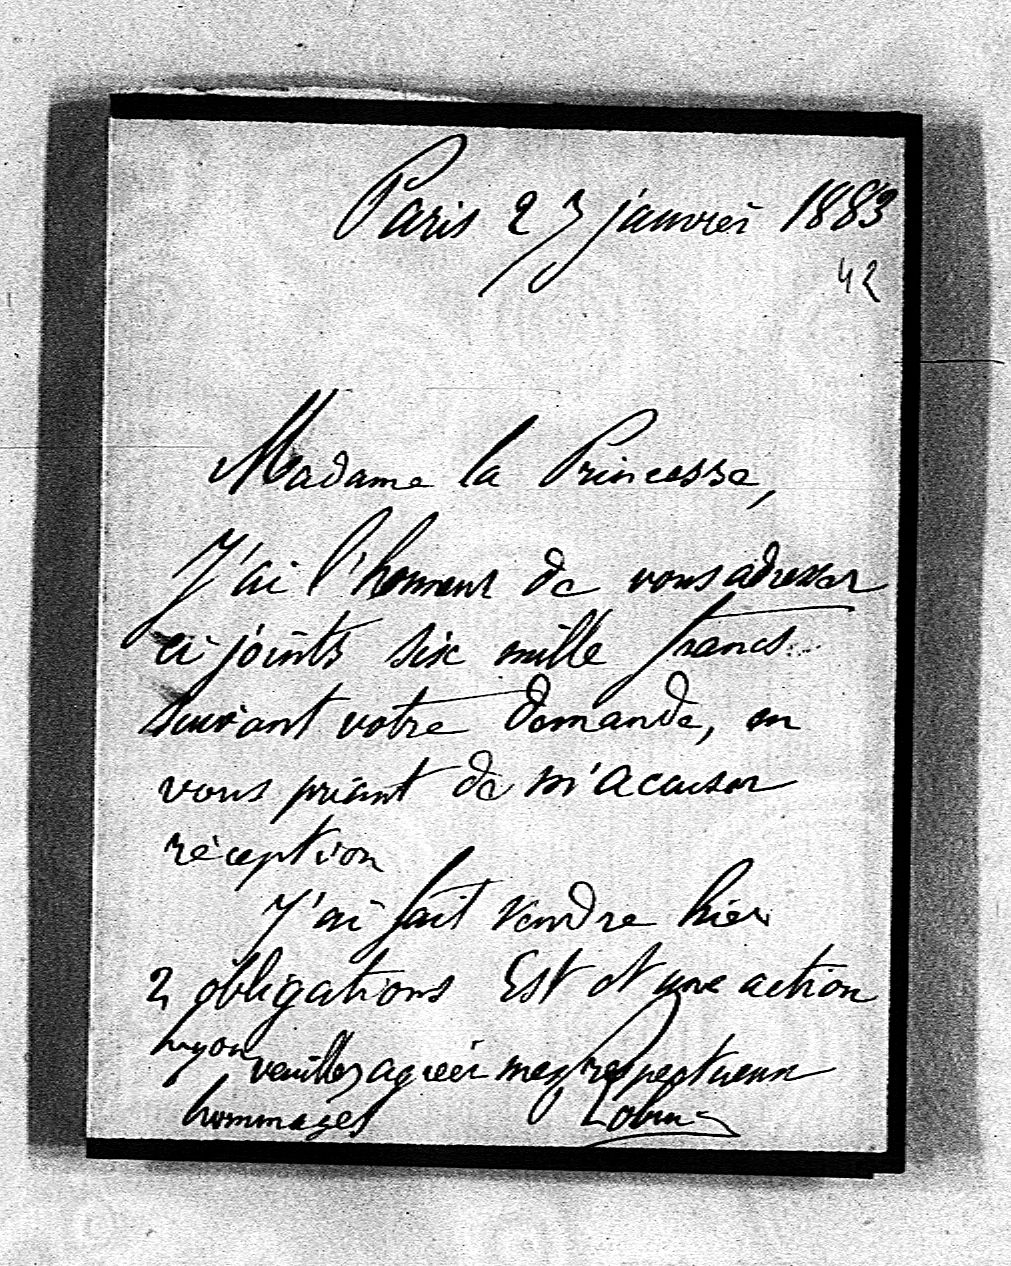 Paris 23 janvier 1883
42
Madame la Princesse,
J'ai l'honneur de vous adresser
ci-joints six mille francs
suivant votre demande, en
vous priant de m'accuser
réception
J'ai fait vendre hier
2 obligations Est et une action
Lyon veuillez agréer mes respectueux
hommages